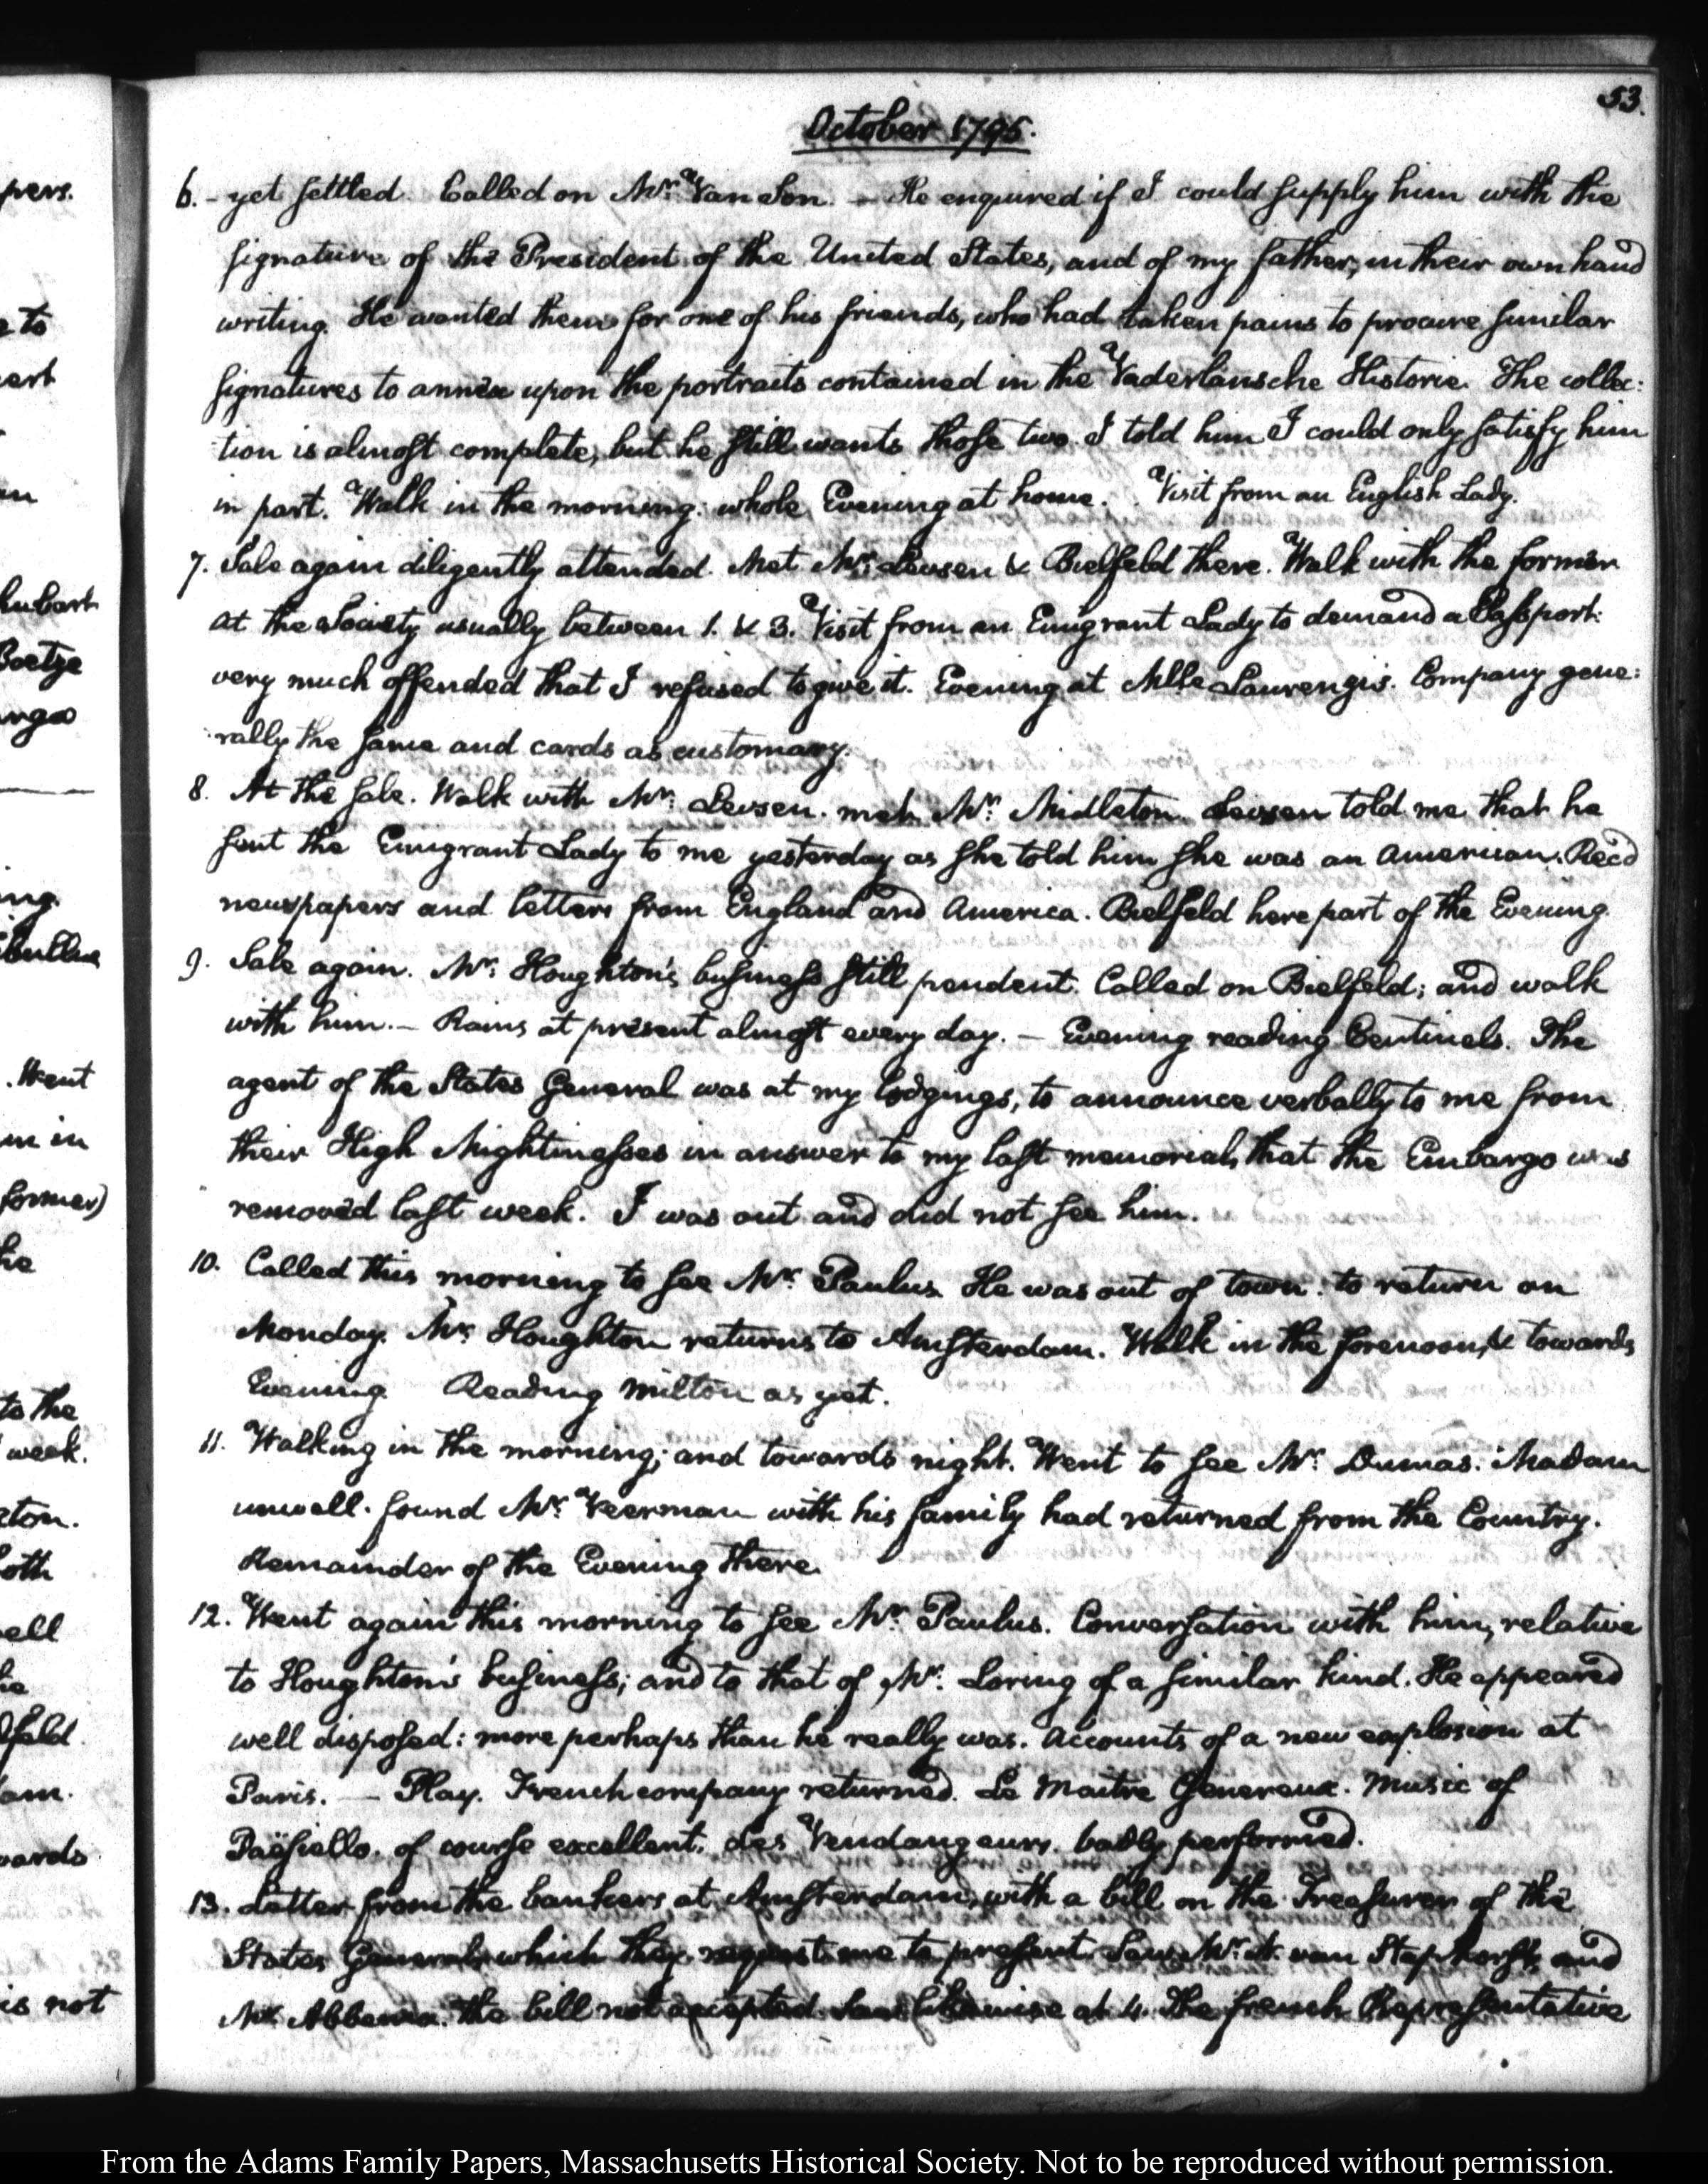 53.
October 1795.
6. - yet settled. Called on Mr. Van Son. — He enquired if I could supply him with the
signature of the President of the United States, and of my father, in their own hand
writing. He wanted them for one of his friends, who had taken pains to procure similar
signatures to annex upon the portraits contained in the Vaderlansche Historie. The collec:
tion is almost complete, but he still wants those two. I told him I could only satisfy him
in part. Walk in the morning: whole Evening at home. Visit from an English Lady.
7. Sale again diligently attended. Met Mr: Levsen & Bielfeld there. Walk with the former
at the Society usually between 1. & 3. Visit from an Emigrant Lady to demand a Passport:
very much offended that I refused to give it. Evening at Mlle Laurengis. Company gene:
rally the same and cards as customary.
8. At the sale. Walk with Mr: Levsen. met Mr: Midleton. Levsen told me that he
sent the Emigrant Lady to me yesterday as she told him she was an American. Recd
newspapers and letters from England and America. Bielfeld here part of the Evening.
9. Sale again. Mr: Houghton's business still pendent. Called on Bielfeld; and walk
with him. — Rains at present almost every day. — Evening reading Centinels. The
agent of the States General was at my lodgings, to announce verbally to me from
their High Mightinesses in answer to my last memorial, that the Embargo was
removed last week. I was out and did not see him.
10. Called this morning to see Mr. Paulus. He was out of town: to return on
Monday. Mr. Houghton returns to Amsterdam. Walk in the forenoon, & towards
Evening. Reading Milton as yet.
11. Walking in the morning; and towards night. Went to see Mr: Dumas. Madam
unwell. found Mr. Veerman with his family had returned from the Country.
Remainder of the Evening there.
12. Went again this morning to see Mr. Paulus. Conversation with him, relative
to Houghton's business; and to that of Mr. Loring of a similar kind. He appeared
well disposed: more perhaps than he really was. Accounts of a new explosion at
Paris. — Play. French company returned. Le Maitre Genereux. Music of
Paësiello. of course excellent. Les Vendangeurs. badly performed.
13. Letter from the bankers at Amsterdam, with a bill on the Treasurer of the
States General, which they request me to present. Saw Mr. N. van Staphorst, and
Mr. Abbema. The bill not accepted. Saw likewise at 4. The french Representative
pers.
e to
ert
hubart
Boetze
argo
ing.
. Went
im in
former)
he
to the
week.
eton.
oth
ell
he
lfeld.
am.
wards
is not
From the Adams Family Papers, Massachusetts Historical Society. Not to be reproduced without permission.